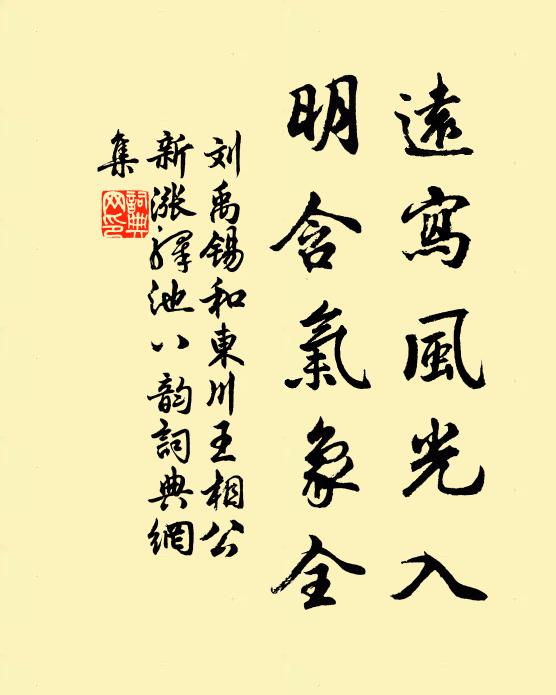 遠寫風光入
明含氣象全
刘禹锡和東川王相公
新漲驛池八韵詞典網
集
詞典
网印